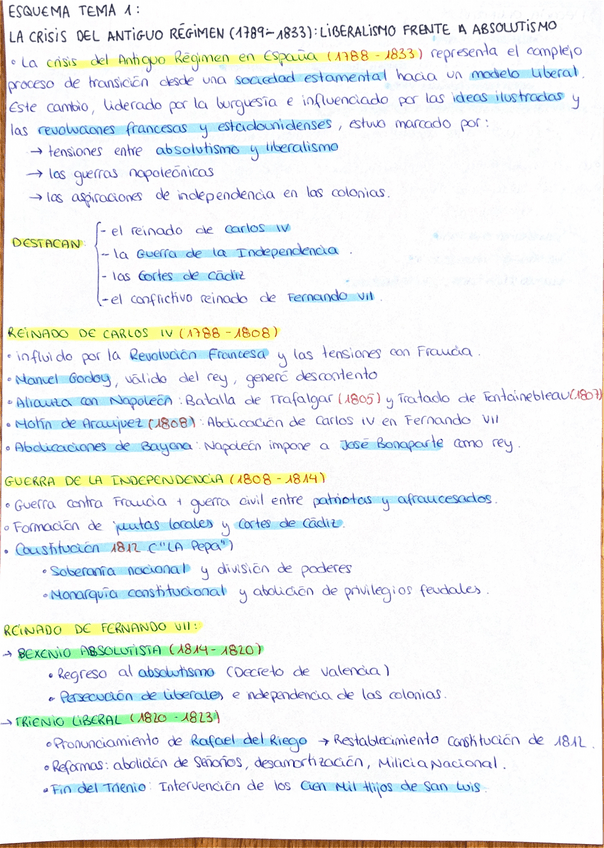 ESQUEMA TEMA 1:
LA CRISIS DEL ANTIGUO RÉGIMEN (1789-1833): LIBERALISMO FRENTE A ABSOLUTISMO
• La crisis del Antiguo Régimen en España (1788-1833) representa el complejo
proceso de transición desde una sociedad estamental hacia un modelo liberal.
Este cambio, liderado por la burguesía e influenciado por las ideas ilustradas y
las revoluciones francesas y estadounidenses, estuvo marcado por:
→ tensiones entre absolutismo y liberalismo
→ las guerras napoleónicas
→ las aspiraciones de independencia en las colonias.
DESTACAN
- el reinado de Carlos IV
- la Guerra de la Independencia.
- las Cortes de Cádiz
- el conflictivo reinado de Fernando VII.
REINADO DE CARLOS IV (1788-1808)
• influido por la Revolución Francesa y las tensiones con Francia.
• Manuel Godoy, válido del rey, generó descontento
• Alianza con Napoleón: Batalla de Trafalgar (1805) y Tratado de Fontainebleau (1807)
• Motín de Aranjuez (1808): Abdicación de Carlos IV en Fernando VII
• Abdicaciones de Bayona: Napoleón impone a José Bonaparte como rey.
GUERRA DE LA INDEPENDENCIA (1808-1814)
• Guerra contra Francia + guerra civil entre patriotas y afrancesados.
• Formación de juntas locales y Cortes de Cádiz.
• Constitución 1812 ("LA Pepa")
• Soberanía nacional y división de poderes
• Monarquía constitucional y abolición de privilegios feudales.
REINADO DE FERNANDO VII:
→ BEXENIO ABSOLUTISTA (1814-1820)
• Regreso al absolutismo (Decreto de Valencia)
• Persecución de liberales e independencia de las colonias.
→ TRIENIO LIBERAL (1820-1823)
• Pronunciamiento de Rafael del Riego → Restablecimiento Constitución de 1812.
• Reformas: abolición de Señoríos, desamortización, Milicia Nacional.
• Fin del Trienio: Intervención de los Cien Mil Hijos de San Luis.